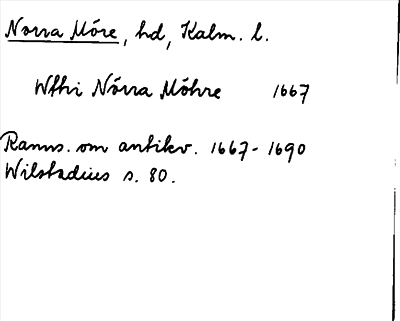 Norra Möre, hd, Kalm. l.
Wthi Nörra Möhre 1667
Ranns. om antikv. 1667-1690
Wilstadius s. 80.